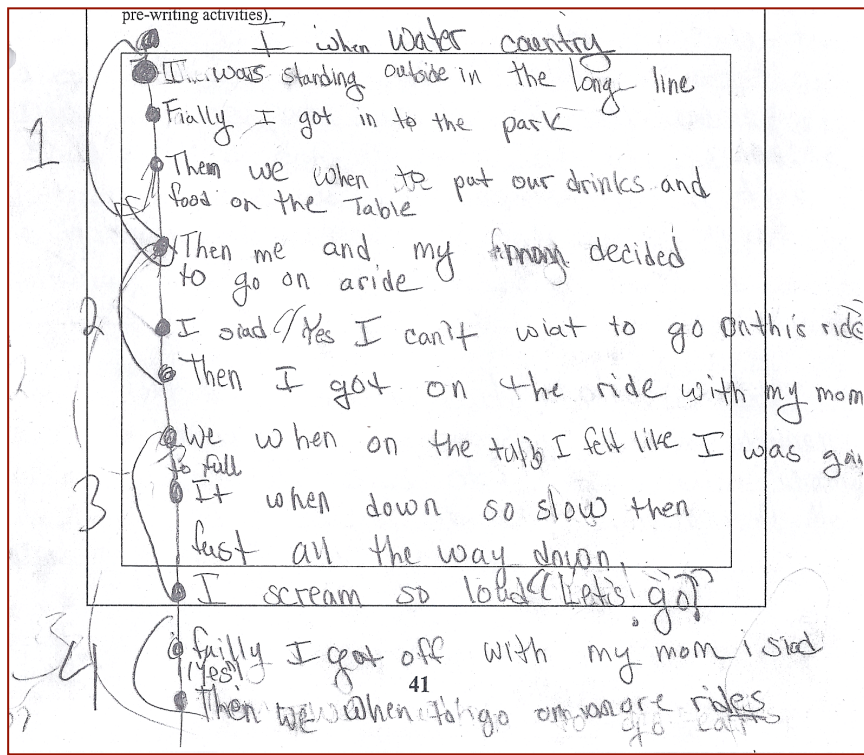 pre-writing activities).
I when Water country
I was standing outside in the long line
1
Fially I got in to the park
Them we when to put our drinks and
food on the Table
Then me and my decided
to go on aride
2
I siad "Yes I can't wiat to go on this ride
Then I got on the ride with my mom
We when on the I felt like I was
to fall
3
It when down so slow then
fast all the way down.
I scream so loud "Let's go!"
4
failly I got off with my mom i siad
"Yes"
41
Then we when to go on more rides